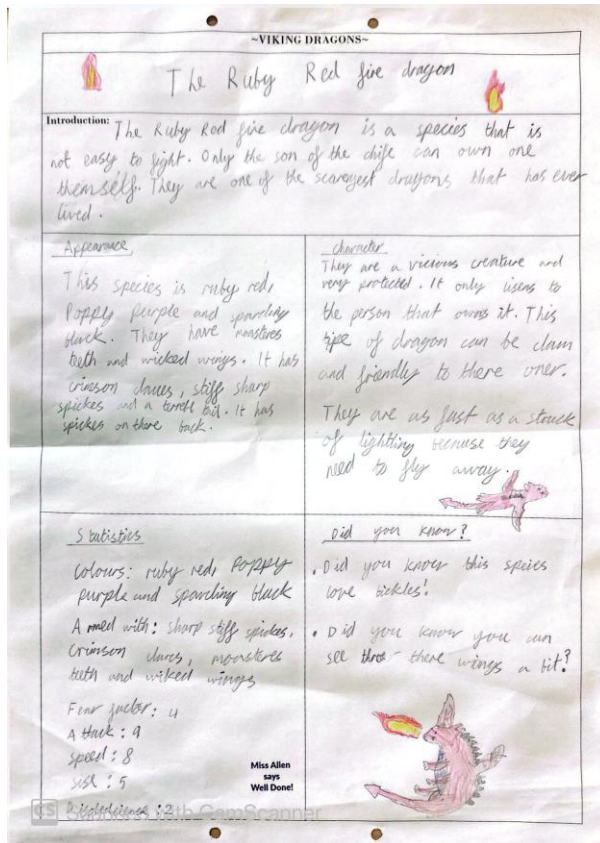 ~VIKING DRAGONS~
The Ruby Red fire dragon
Introduction: The Ruby Rod fire dragon is a species that is
not easy to fight. Only the son of the chife can own one
themself. They are one of the scareyest dragons that has ever
lived.
Appearance
This species is ruby red,
Poppy purple and sparcling
black. They have monsteres
teeth and wicked wings. It has
crimson claues, stiff sharp
spickes and a terrefc tail. It has
spickes on there back.
character
They are a vicious creature and
very protected. It only lisens to
the person that owns it. This
tipe of dragon can be clam
and friendly to there oner.
They are as fast as a struck
of lightling because they
need to fly away.
Statistics
Colours: ruby red, Poppy
purple and sparcling black
Armed with: sharp stiff spickes,
Crimson claws, monsteres
teeth and wiked wings
Fear factor: 4
Attack: 9
Speed: 8
Size: 5
Disobedience: 2
Did you know?
• Did you know this species
love tickles!
• Did you know you can
see throo there wings a bit?
Miss Allen
says
Well Done!
CS Scanned with CamScanner